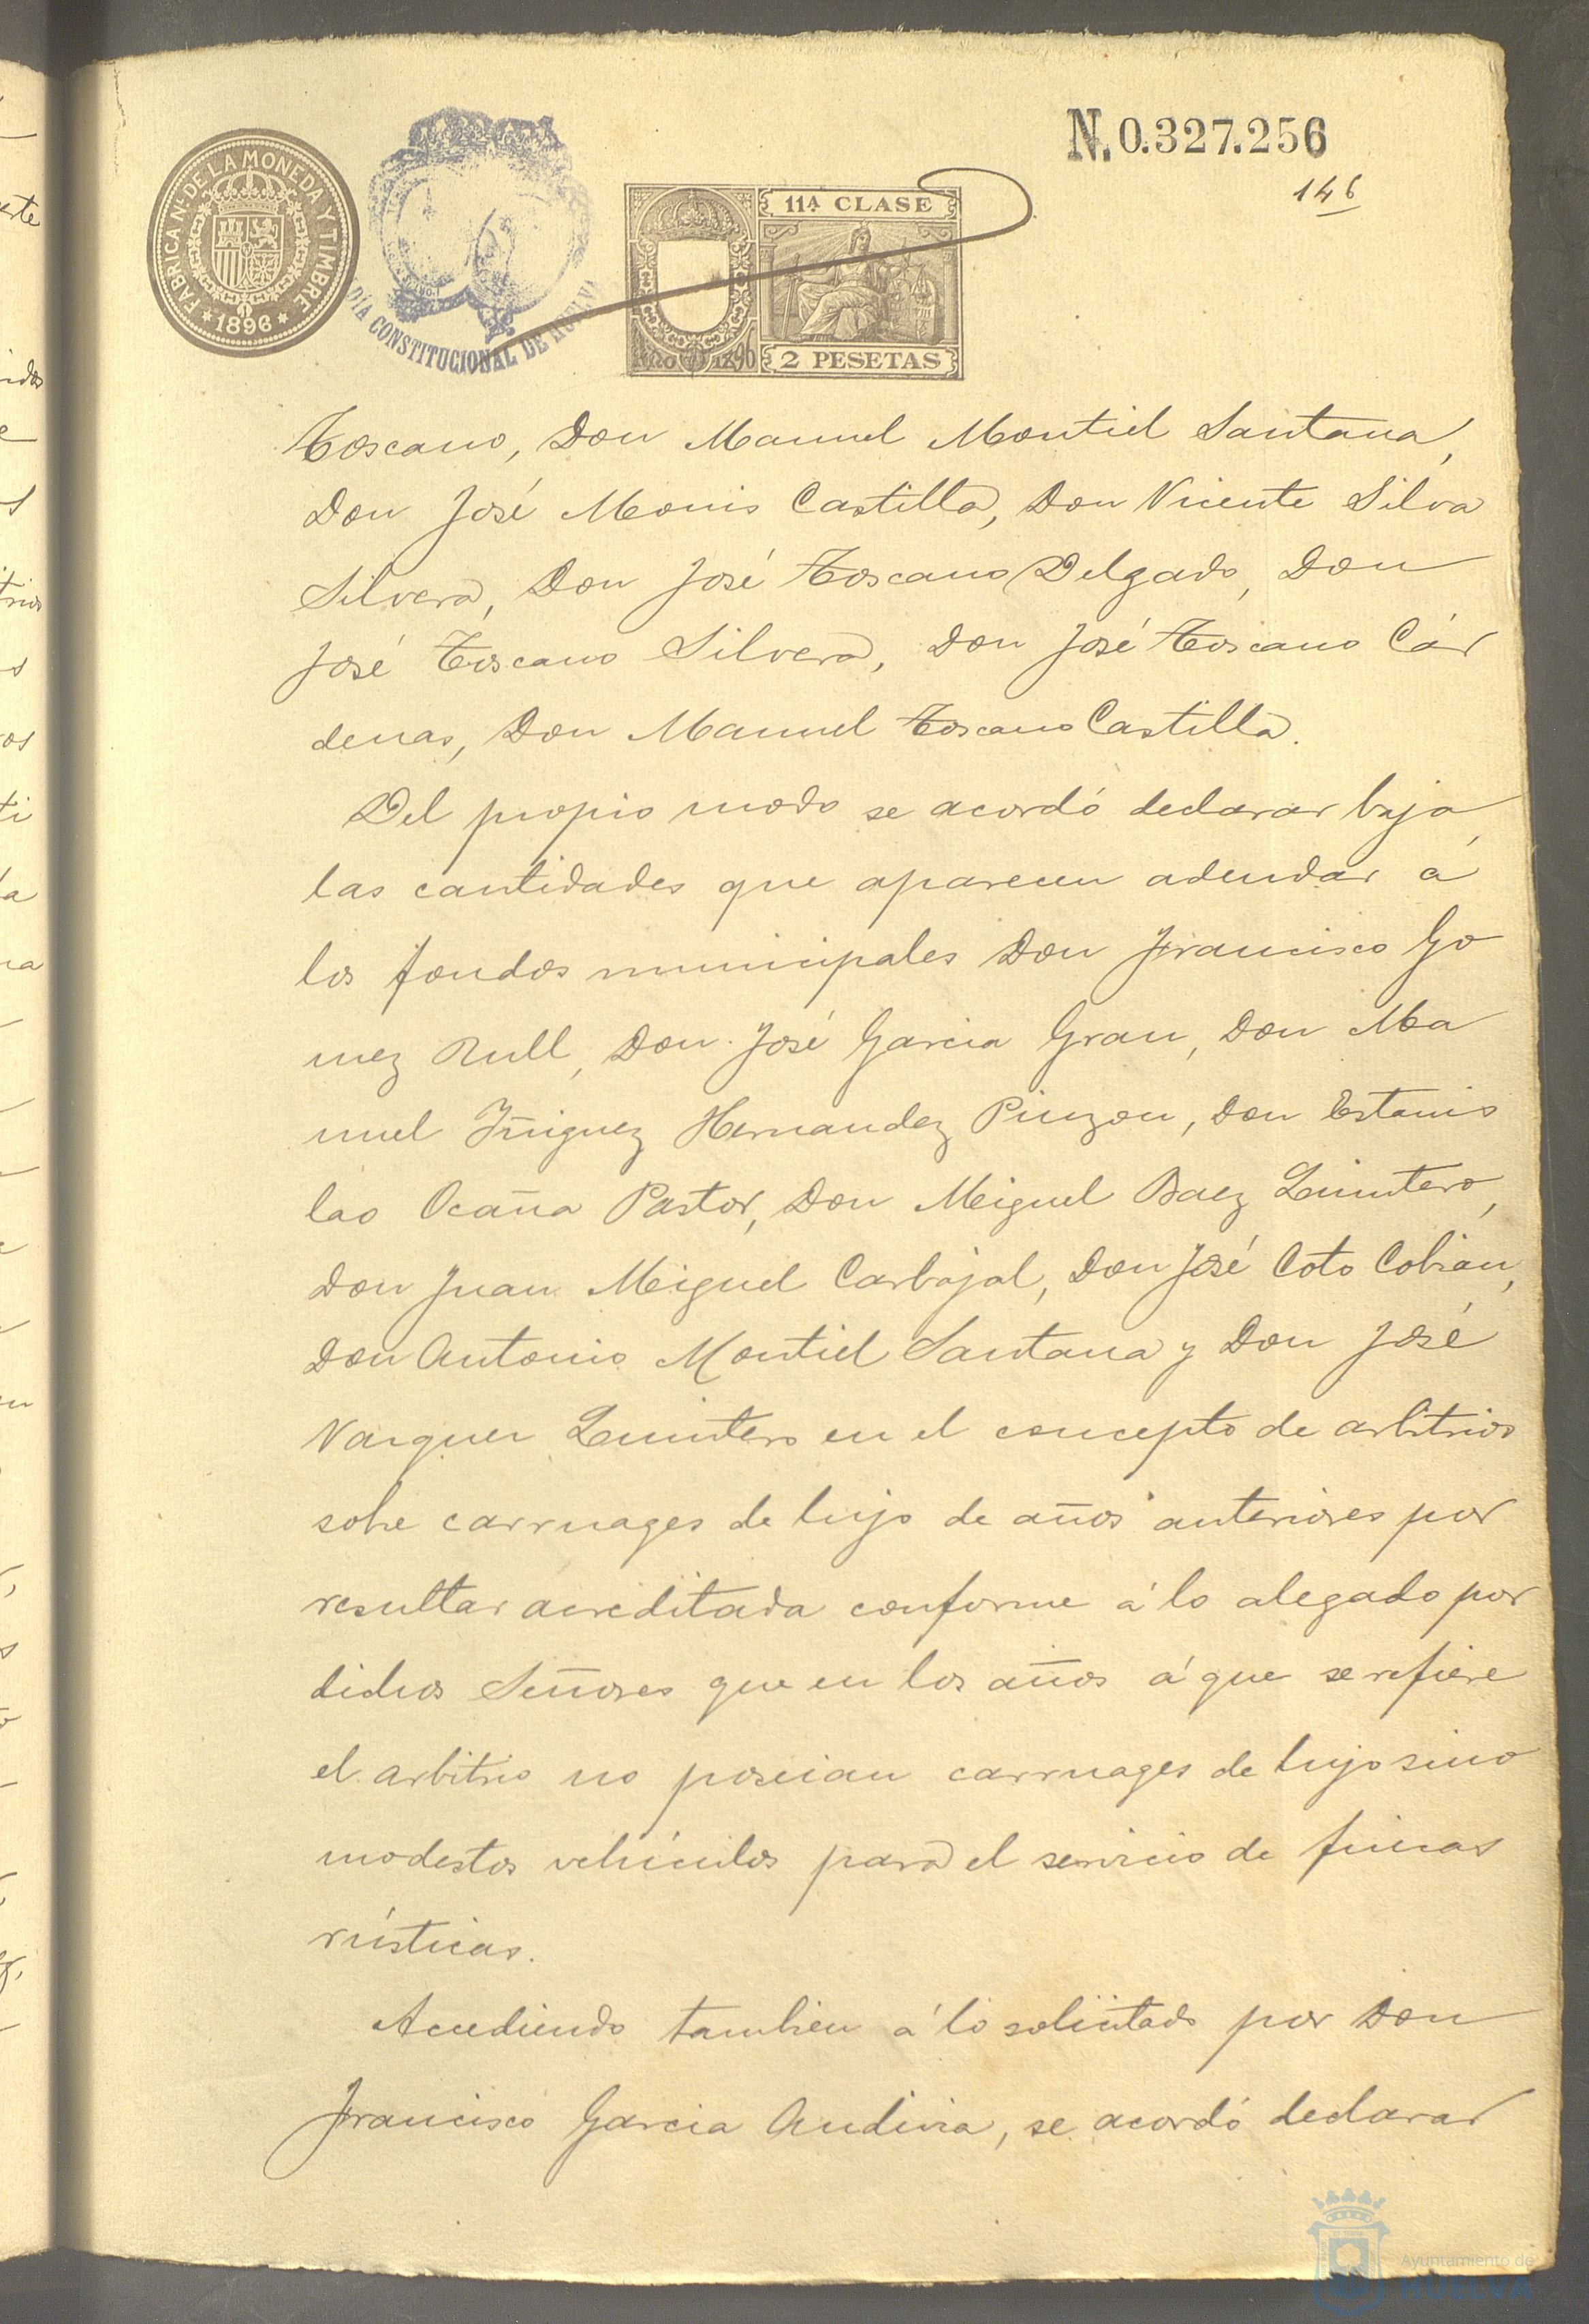 N. 0.327.256
146
FABRICA Nl. DE LA MONEDA Y TIMBRE
* 1896 *
DÍA CONSTITUCIONAL DE HUELVA
11ª CLASE
AÑO 1896
2 PESETAS
Toscano, Don Manuel Montiel Santana,
Don José Monis Castilla, Don Vicente Silva
Silvera, Don José Toscano Delgado, Don
José Toscano Silvera, Don José Toscano Cár
denas, Don Manuel Toscano Castilla.
Del propio modo se acordó declarar baja
las cantidades que aparecen adeudar á
los fondos municipales Don Francisco Go
mez Rull, Don José Garcia Gran, Don Ma
nuel Iñiguez Hernandez Pinzon, Don Estanis
lao Ocaña Pastor, Don Miguel Baez Quintero,
Don Juan Miguel Carbajal, Don José Coto Cobian,
Don Antonio Montiel Santana y Don José
Vazquez Quintero en el concepto de arbitrios
sobre carruages de lujo de años anteriores por
resultar acreditada conforme á lo alegado por
dichos Señores que en los años á que se refiere
el arbitrio no poseian carruages de lujo sino
modestos vehículos para el servicio de fincas
rústicas.
Accediendo tambien á lo solicitado por Don
Francisco Garcia Audivia, se acordó declarar
Ayuntamiento de
HUELVA